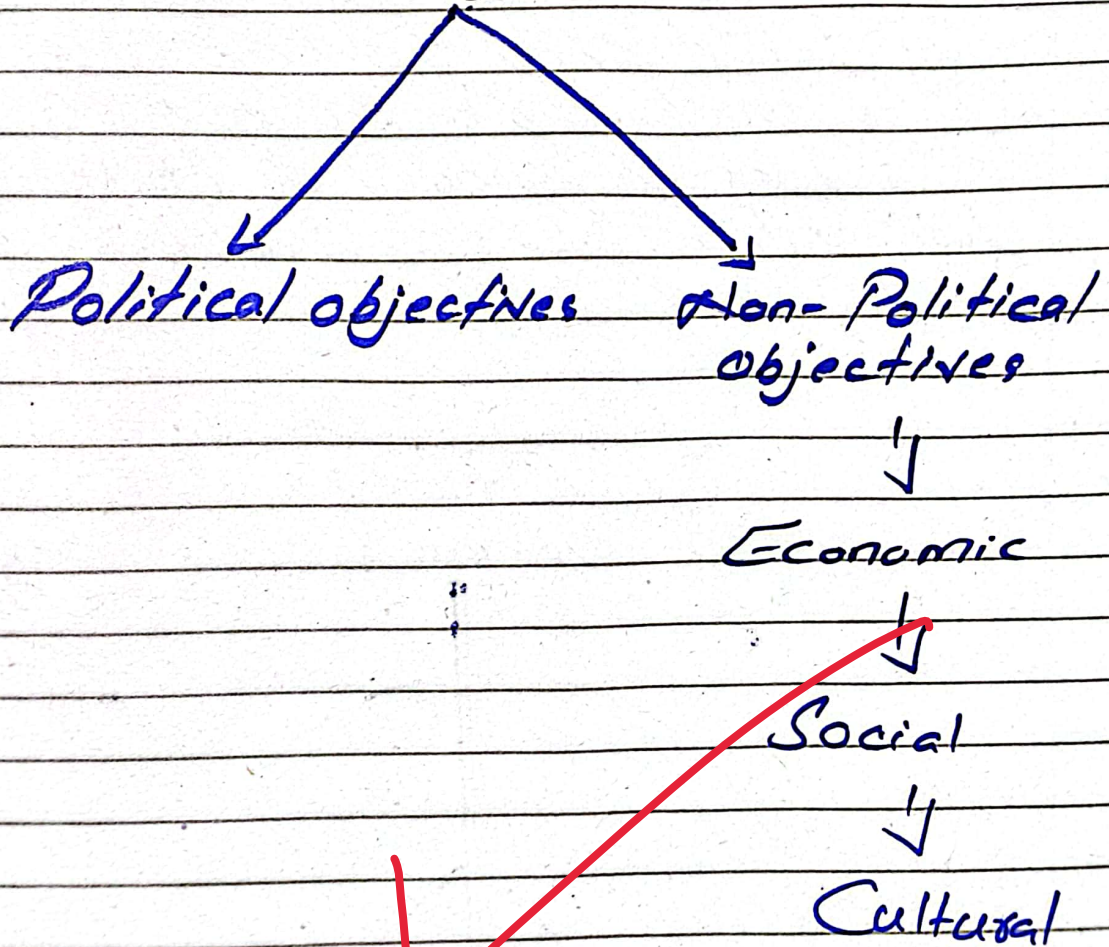 Political objectives
Non-Political
objectives
Economic
Social
Cultural